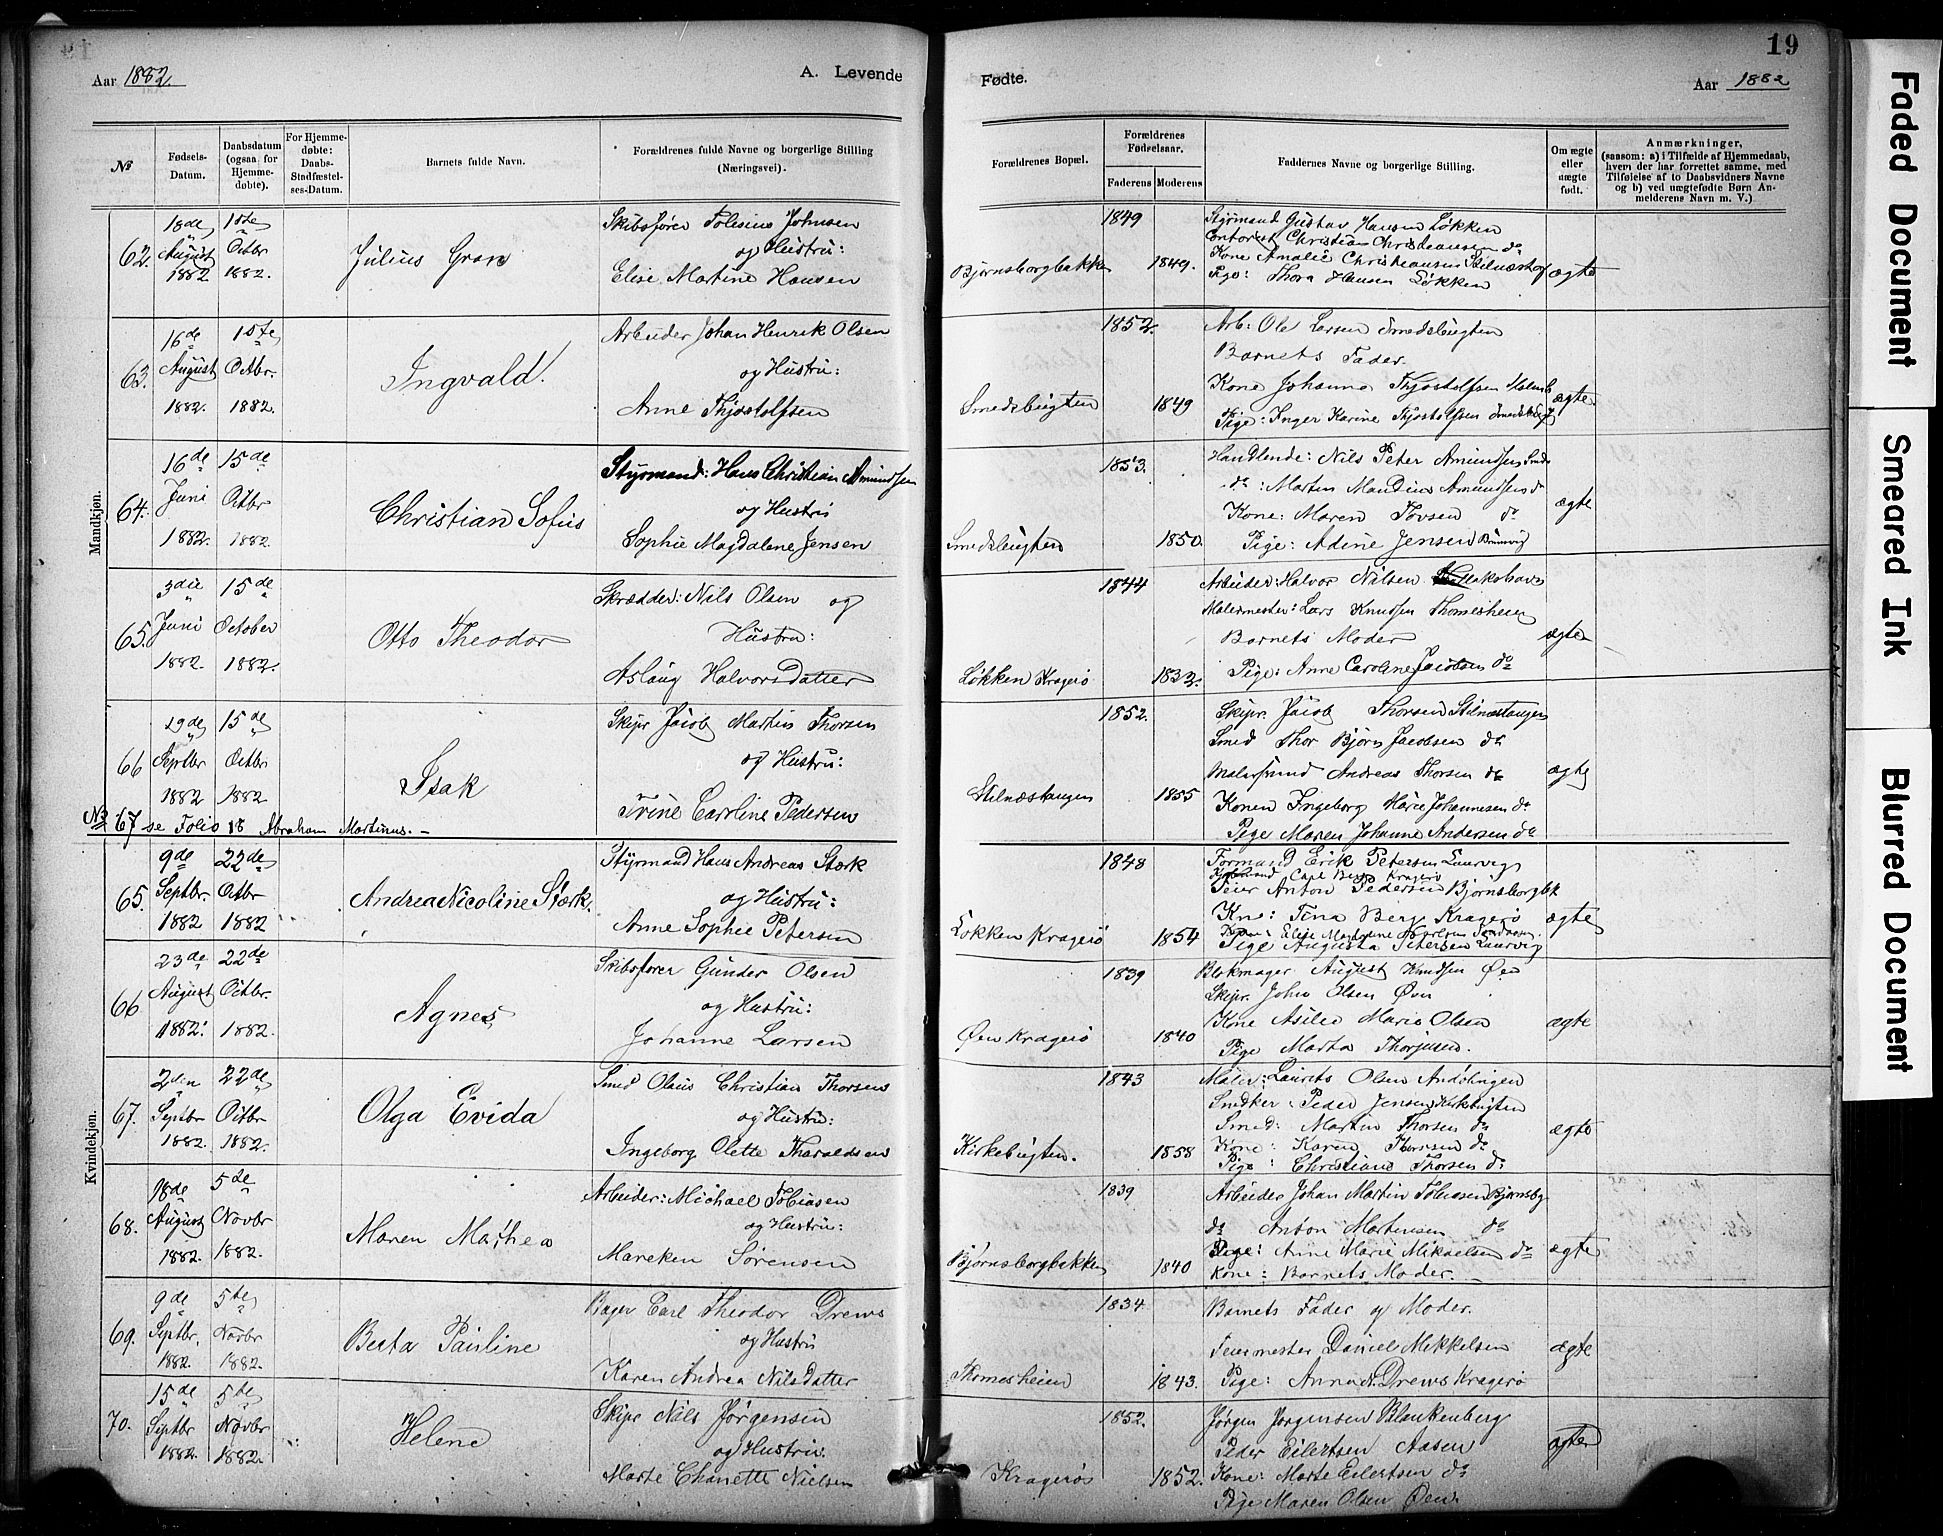 Aar 1882. A. Levende
Fødte. Aar 1882
19
№
Fødsels-Datum.
Daabsdatum (ogsaa for Hjemme-døbte).
For Hjemme-døbte: Daabs-Stadfæstel-ses-Datum.
Barnets fulde Navn.
Forældrenes fulde Navne og borgerlige Stilling (Næringsvei).
Forældrenes Bopæl.
Forældrenes Fødselsaar.
Faderens Moderens
Faddernes Navne og borgerlige Stilling.
Om ægte eller uægte født.
Anmærkninger,
(saasom: a) i Tilfælde af Hjemmedaab,
hvem der har forrettet samme, med
Tilføielse af to Daabsvidners Navne
og b) ved uægtefødte Børn An-
melderens Navn m. V.)
Mandkjøn.
62. 18de August 1882 15te Octbr 1882.
Julius Gran
Skibsfører Tolesius Johnsen
og Hustru:
Elise Martine Hansen
Bjørnsborgbakken
1849 1849.
Styrmand Gustav Hansen Løkken
Contorist Christian Christiansen do
Kone Amalie Christiansen
Pige: Thora Hansen Løkken
ægte
63. 16de August 1882. 15te Octbr. 1882.
Ingvald.
Arbeider Johan Henrik Olsen
og Hustru:
Anne Thjostolfsen
Smedsbugten
1852. 1849
Arb: Ole Larsen Smedsbugten
Barnets Fader.
Kone Johanna Thjostolfsen
Pige: Inger Karine Thjostolfsen
ægte.
64. 16de Juni 1882. 15de Octbr 1882.
Christian Sofus
Styrmand: Hans Christian Amundsen
og Hustru
Sophie Magdalene Jensen
Smedsbugten
1853. 1850.
Handlende: Nils Peter Amundsen
do: Martin Mandius Amundsen do
Kone: Maren Tovsen do
Pige: Adine Jensen
ægte
65. 3die Juni 1882. 15de October 1882.
Otto Theodor
Skrædder: Nils Olsen og
Hustru:
Aslaug Halvorsdatter
Løkken Kragerø
1844 1832.
Arbeider: Halvor Nilsen
Malermester: Lars Knudsen Thomesheien
Barnets Moder
Pige: Anne Caroline Jacobsen do
ægte
66 29de Septbr 1882 15de Octbr 1882
Isak
Skipr Jacob Martin Thorsen
og Hustru:
Trine Caroline Pedersen
Stilnæstangen
1852. 1855
Skipr. Jacob Thorsen Stilnæstangen
Smed Thor Bjørn Jacobsen do
Andreas Thorsen do
Konen Ingeborg Marie Johannesen do
Pige Maren Johanne Andersen do
ægte
No 67 se Folio 18 Abraham Martinus. —
Kvindekjøn.
65. 9de Septbr. 1882 22de Octbr 1882
Andrea Nicoline Stærk.
Styrmand Hans Andreas Stærk
og Hustru:
Anne Sophie Petersen
Løkken Kragerø
1848 1854
Formand Erik Petersen Laurvig
Carl Berg Kragerø
Feier Anton Pedersen Bjørnsborgbk
Kne: Tina Berg Kragerø
Pige Augusta Petersen Laurvig
ægte
66 23de August 1882. 22de Octbr. 1882.
Agnes
Skibsfører Gunder Olsen
og Hustru:
Johanne Larsen
Øen Kragerø
1839 1840
Blokmager August Knudsen Øen
Skipr. John Olsen Øen
Kone Asilie Marie Olsen
Pige Marta Thorjusen.
ægte
67. 2den Septbr 1882. 22de Octbr 1882.
Olga Evida
Smed Olaus Christian Thorsen
og Hustru:
Ingeborg Olette Tharaldsen
Kirkebugten.
1843 1858
Maler: Laurits Olsen Andølingen
Snedker: Peder Jensen Kirkebugten
Smed: Martin Thorsen do
Kone: Karen Thorsen do
Pige: Christiane Thorsen do
ægte
68. 18de August 1882. 5de Novbr 1882.
Maren Mathea
Arbeider: Michael Tobiasen
og Hustru:
Mareken Sørensen
Bjørnsborgbakken
1839 1840
Arbeider Johan Martin Tobiasen Bjørnsbg
do Anton Martinsen do
Pige: Anne Marie Mikaelsen do
Kone: Barnets Moder.
ægte
69. 9de Septbr. 1882. 5te Novbr 1882.
Berta Pauline
Bager Carl Theodor Drews
og Hustru
Karen Andrea Nilsdatter
Thomesheien
1834 1843.
Barnets Fader og Moder.
Feiermester Daniel Mikkelsen
Pige: Anna N. Drews Kragerø
ægte
70. 15de Septbr 1882. 5te Novbr 1882.
Helene
Skipr Nils Jørgensen
og Hustru.
Marte Chanette Nielsen
Kragerø
1852. 1852.
Jørgen Jørgensen Blankenberg
Peder Eilertsen Aasen
Kone: Marte Eilertsen do
Pige Maren Olsen Øen.
ægte
Faded Document
Smeared Ink
Blurred Document